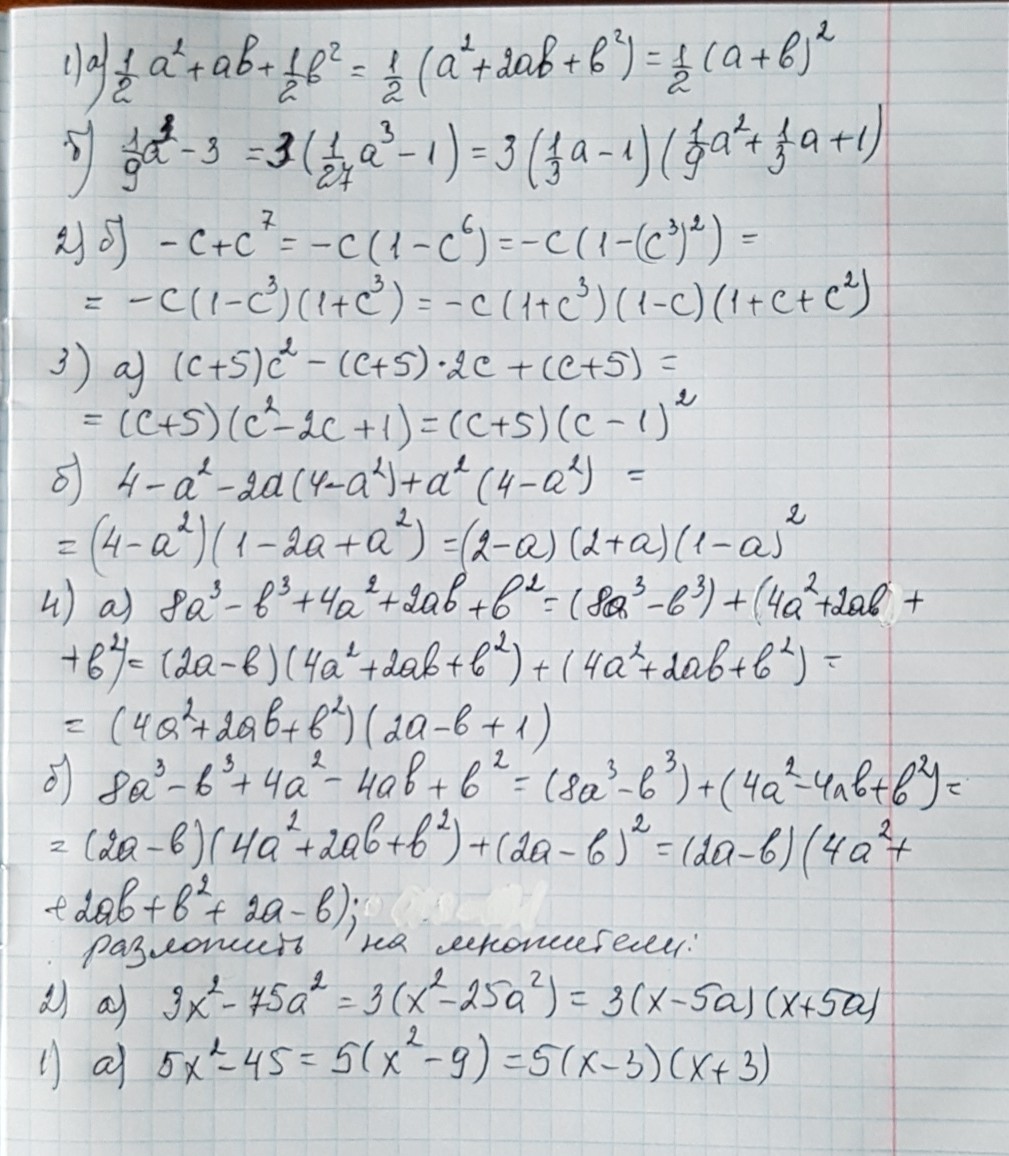 1) а) 1/2 a² + ab + 1/2 b² = 1/2 (a² + 2ab + b²) = 1/2 (a + b)²
б) 1/9 a³ - 3 = 3(1/27 a³ - 1) = 3(1/3 a - 1)(1/9 a² + 1/3 a + 1)
2) б) -c + c⁷ = -c(1 - c⁶) = -c(1 - (c³)²) =
= -c(1 - c³)(1 + c³) = -c(1 + c³)(1 - c)(1 + c + c²)
3) а) (c+5)c² - (c+5)·2c + (c+5) =
= (c+5)(c² - 2c + 1) = (c+5)(c - 1)²
б) 4 - a² - 2a(4 - a²) + a²(4 - a²) =
= (4 - a²)(1 - 2a + a²) = (2 - a)(2 + a)(1 - a)²
4) а) 8a³ - b³ + 4a² + 2ab + b² = (8a³ - b³) + (4a² + 2ab +
+ b²) = (2a - b)(4a² + 2ab + b²) + (4a² + 2ab + b²) =
= (4a² + 2ab + b²)(2a - b + 1)
б) 8a³ - b³ + 4a² - 4ab + b² = (8a³ - b³) + (4a² - 4ab + b²) =
= (2a - b)(4a² + 2ab + b²) + (2a - b)² = (2a - b)(4a² +
+ 2ab + b² + 2a - b);
разложить на множители:
2) а) 3x² - 75a² = 3(x² - 25a²) = 3(x - 5a)(x + 5a)
1) а) 5x² - 45 = 5(x² - 9) = 5(x - 3)(x + 3)